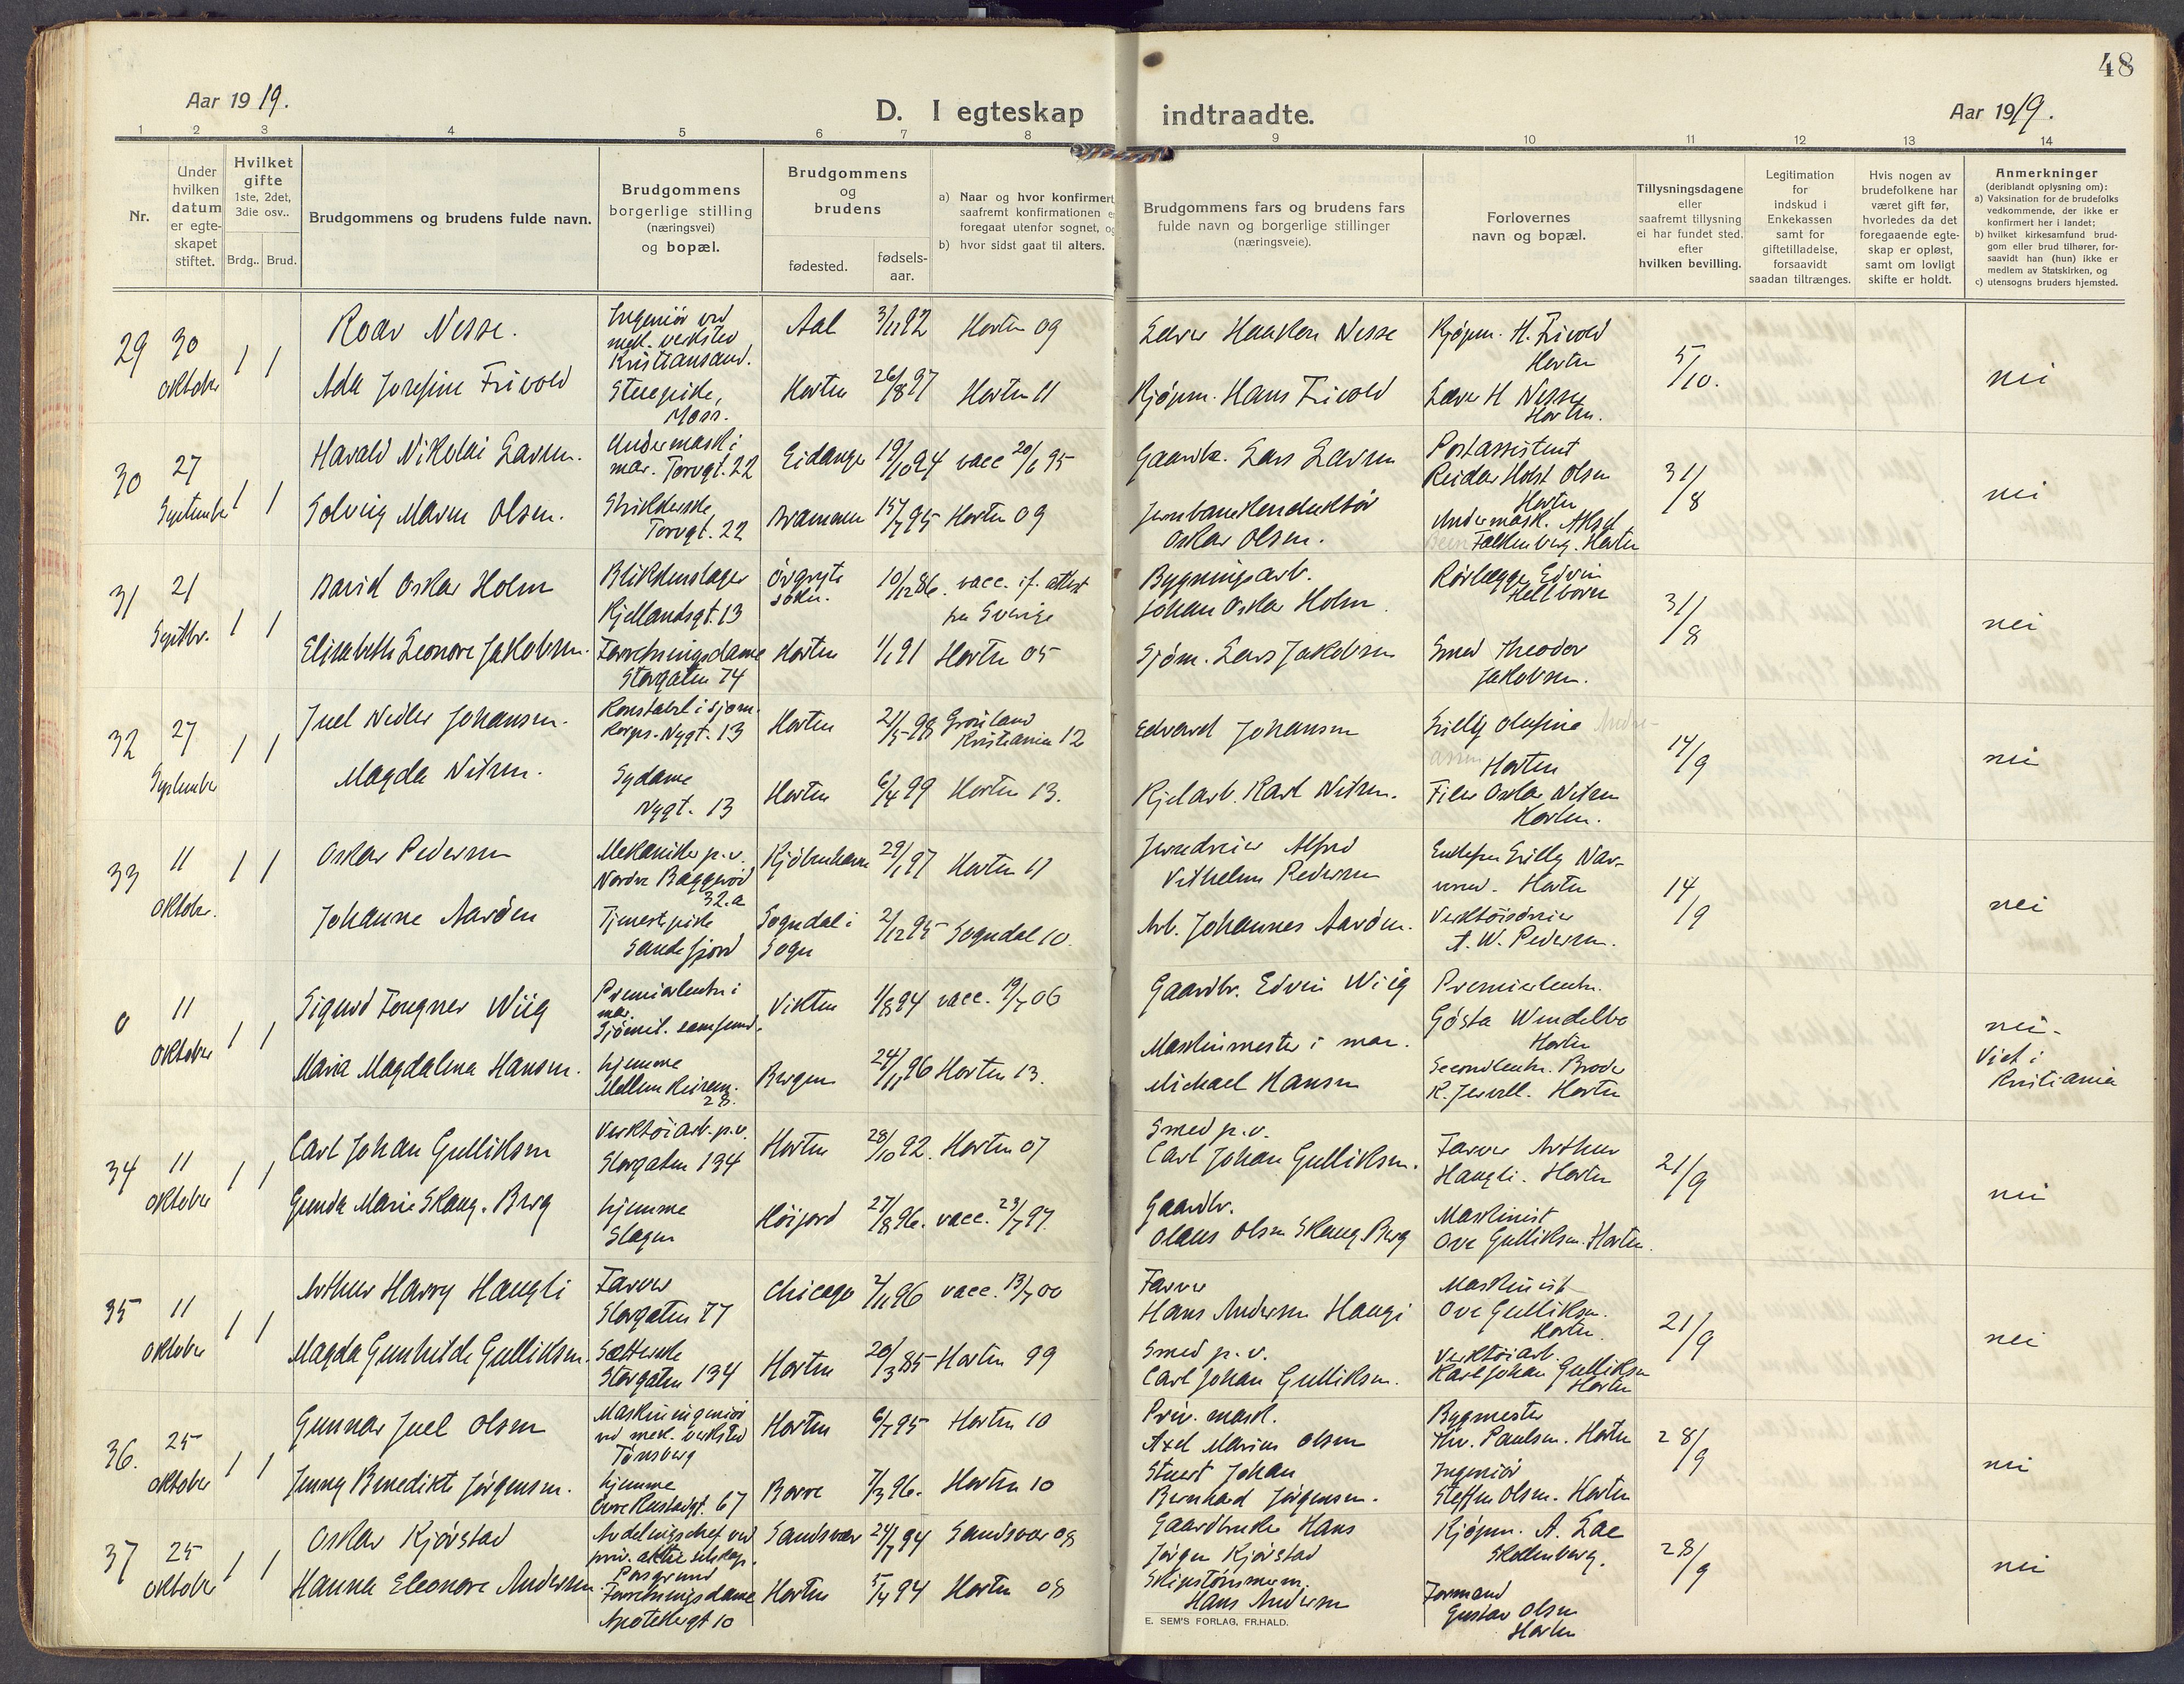 48
Aar 1919.
D. I egteskap indtraadte.
Aar 1919.
1 2 3 4 5 6 7 8 9 10 11 12 13 14
Nr.
Under
hvilken
datum
er egte-
skapet
stiftet.
Hvilket
gifte
1ste, 2det,
3die osv..
Brdg.. Brud.
Brudgommens og brudens fulde navn.
Brudgommens
borgerlige stilling
(næringsvei)
og bopæl.
Brudgommens
og
brudens
fødested.
fødsels-
aar.
a) Naar og hvor konfirmert
saafremt konfirmationen e
foregaat utenfor sognet, og
b) hvor sidst gaat til alters.
Brudgommens fars og brudens fars
fulde navn og borgerlige stillinger
(næringsveie).
Forlovernes
navn og bopæl.
Tillysningsdagene
eller
saafremt tillysning
ei har fundet sted.
efter
hvilken bevilling.
Legitimation
for
indskud i
Enkekassen
samt for
giftetilladelse,
forsaavidt
saadan tiltrænges.
Hvis nogen av
brudefolkene har
været gift før,
hvorledes da det
foregaaende egte-
skap er opløst,
samt om lovligt
skifte er holdt.
Anmerkninger
(deriblandt oplysning om):
a) Vaksination for de brudefolks
vedkommende, der ikke er
konfirmert her i landet;
b) hvilket kirkesamfund brud-
gom eller brud tilhører, for-
saavidt han (hun) ikke er
medlem av Statskirken, og
c) utensogns bruders hjemsted.
29 30 Oktober 1 1
Roar Nesse.
Ingeniør ved
mek. verksted
Kristiansand.
Aal 3/11 92 Horten 09
Lærer Haakon Nesse
Kjøpm. H. Trivold
Horten
5/10. nei
Ada Josefine Trivold
Stuepike,
Moss.
Horten 26/8 97 Horten 11
Kjøpm. Hans Trivold
Lærer H Nesse
Horten.
30 27 September 1 1
Harald Nikolai Larsen.
Undermask i
mar. Torvgt. 22
Eidanger 19/10 94 vacc 20/6 95
Gaardbr. Lars Larsen
Postassistent
Reidar Holst Olsen
Horten
31/8 nei
Solveig Maren Olsen.
Torvgt. 22
Brammen 15/7 95 Horten 09
Jernbanekonduktør
Oskar Olsen.
Undermask. Aksel
Falkenberg. Horten
31 21 Septbr. 1 1
David Oskar Holm
Blikkenslager
Kjellandsgt. 13
Örgryte
sokn.
10/12 86. vacc. if. attest
fra Sverige
Bygningsarb.
Johan Oskar Holm.
Rørlægger Edvin
Hellborn
31/8 nei
Elisabeth Leonore Jakobsen.
Forretningsdame
Storgaten 74
Horten 1/1 91 Horten 05
Sjøm. Lars Jakobsen
Smed Theodor
Jakobsen.
32 27 September 1 1
Juel Johansen.
Konstabel i sjøm.
korps. Nygt. 13
Horten 21/5 98 Grønland
Kristiania 12
Edvard Johansen
Lilly Olefine
Horten
14/9 nei
Magda Nilsen.
Sydame
Nygt. 13
Horten 6/4 99 Horten 13.
Kjelarb. Karl Nilsen.
Filer Oskar Nilsen
Horten.
33 11 Oktober. 1 1
Oskar Pedersen
Mekaniker p.v.
Nordre Baggerød
32.a
Kjøbenhavn 29/1 97 Horten 11
Jerndreier Alfred
Vilhelm Pedersen
Horten
14/9 nei
Johanne Aarøen
Tjenestepike
Sandefjord
Sogndal i
Sogn
2/12 95 Sogndal 10.
Arb. Johannes Aarøen.
Verktøisdreier
A. W. Pedersen.
0 11 Oktober 1 1
Sigurd Fougner Wiig
Premierløitn i
mar.
Sjømil. samfund.
Vikten 1/8 94 vacc. 19/7 06
Gaardbr. Edvin Wiig
Premierløitn.
Gösta Wendelbo
Horten
nei.
Viet i
Kristiania
Maria Magdalena Hansen.
hjemme
Mellem Keisem.
28.
Bergen 24/11 96 Horten 13.
Maskinmester i mar.
Michael Hansen
Secondløitn. Broder
K. Jervell. Horten
34 11 Oktober 1 1
Carl Johan Gulliksen
Verktøiarb. p.v.
Storgaten 134
Horten 28/10 92. Horten 07
Smed p.v.
Carl Johan Gulliksen.
Farver Arthur
Haugli. Horten
21/9 nei
Gunda Marie Skaug. Berg
hjemme
Slagen
Høijord 27/8 96. vacc. 23/7 97.
Gaardbr.
Olaus Olsen Skaug Berg
Maskinist
Ove Gulliksen. Horten.
35 11 Oktober 1 1
Arthur Harry Haugli
Farver
Storgaten 77
Chicago 2/11 96 vacc. 13/7 00
Farver
Hans Andersen Haugi
Maskinist
Ove Gulliksen.
Horten.
21/9 nei
Magda Gunhilde Gulliksen.
Sætterske
Storgaten 134
Horten 20/3 85 Horten 99
Smed p.v.
Carl Johan Gulliksen.
Verktøiarb.
Karl Johan Gulliksen
Horten
36. 25 Oktober 1 1
Gunnar Juel Olsen
Maskiningeniør
ved mek. verksted
Tønsberg
Horten 6/7 95 Horten 10
Priv. mask.
Axel Marius Olsen
Bygmester
Thv. Paulsen. Horten
28/9 nei
Jenny Benedikte Jørgensen.
hjemme
Øvre Keisemgt. 67
Borre 7/3 96. Horten 10
Stuert Johan
Bernhard Jørgensen.
Ingeniør
Steffen Olsen. Horten
37 25 Oktober 1 1
Oskar Kjørstad
Avdelingschef ved
priv. aktieselskap.
Porsgrund
Sandsvær 24/7 94 Sandsvær 08
Gaardbruker Hans
Jørgen Kjørstad
Kjøpm. A. Lae
Skollenberg.
28/9 nei
Hanna Eleonore Andersen.
Forretningsdame
Apotekergt 10
Horten 5/4 94 Horten 08
Skipstømmerm.
Hans Andersen
Formand
Gustav Olsen
Horten
E. SEM'S FORLAG, FR.HALD.